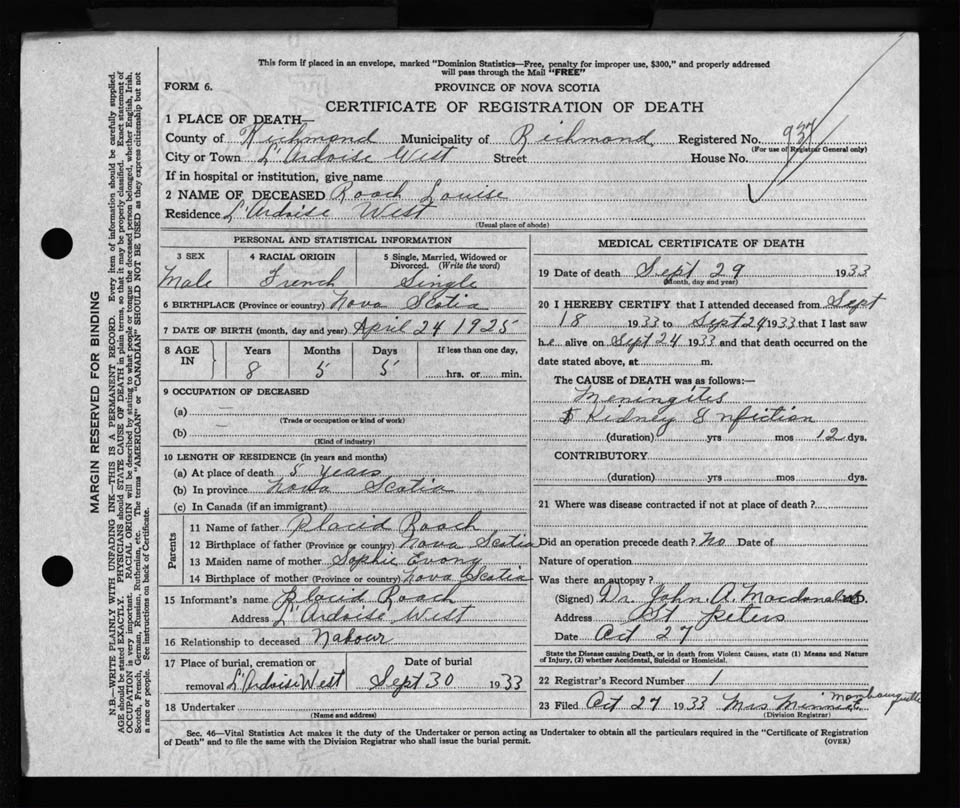 This form if placed in an envelope, marked "Dominion Statistics—Free, penalty for improper use, $300," and properly addressed
will pass through the Mail "FREE"
FORM 6.
PROVINCE OF NOVA SCOTIA
CERTIFICATE OF REGISTRATION OF DEATH
1 PLACE OF DEATH—
County of Richmond Municipality of Richmond Registered No. 937
(For use of Registrar General only)
City or Town L'Ardoise West Street House No.
If in hospital or institution, give name
2 NAME OF DECEASED Roach Louise
Residence L'Ardoise West
(Usual place of abode)
PERSONAL AND STATISTICAL INFORMATION
3 SEX 4 RACIAL ORIGIN 5 Single, Married, Widowed or
Divorced. (Write the word)
Male French Single
6 BIRTHPLACE (Province or country) Nova Scotia
7 DATE OF BIRTH (month, day and year) April 24 1925
8 AGE IN Years Months Days If less than one day,
8 5 5 hrs. or min.
9 OCCUPATION OF DECEASED
(a) —
(Trade or occupation or kind of work)
(b) —
(Kind of industry)
10 LENGTH OF RESIDENCE (in years and months)
(a) At place of death 5 years
(b) In province Nova Scotia
(c) In Canada (if an immigrant)
Parents
11 Name of father Placid Roach
12 Birthplace of father (Province or country) Nova Scotia
13 Maiden name of mother Sophie
14 Birthplace of mother (Province or country) Nova Scotia
15 Informant's name Placid Roach
Address L'Ardoise West
16 Relationship to deceased Nabour
17 Place of burial, cremation or Date of burial
removal L'Ardoise West Sept 30 1933
18 Undertaker
(Name and address)
MEDICAL CERTIFICATE OF DEATH
19 Date of death Sept 29 1933
(Month, day and year)
20 I HEREBY CERTIFY that I attended deceased from Sept
18 1933 to Sept 24 1933 that I last saw
he alive on Sept 24 1933 and that death occurred on the
date stated above, at m.
The CAUSE OF DEATH was as follows:—
Meningites
& Kidney Enfiction
(duration) yrs mos 12 dys.
CONTRIBUTORY
(duration) yrs mos dys.
21 Where was disease contracted if not at place of death?
Did an operation precede death? No Date of
Nature of operation
Was there an autopsy?
(Signed) Dr. John A. Macdonald M.D.
Address St Peters
Date Oct 27
State the Disease causing Death, or in death from Violent Causes, state (1) Means and Nature
of Injury, (2) whether Accidental, Suicidal or Homicidal.
22 Registrar's Record Number 1
23 Filed Oct 27 1933 Mrs Minnie
(Division Registrar)
Sec. 46—Vital Statistics Act makes it the duty of the Undertaker or person acting as Undertaker to obtain all the particulars required in the "Certificate of Registration
of Death" and to file the same with the Division Registrar who shall issue the burial permit.
(OVER)
MARGIN RESERVED FOR BINDING
N.B.—WRITE PLAINLY WITH UNFADING INK—THIS IS A PERMANENT RECORD. Every item of information should be carefully supplied.
AGE should be stated EXACTLY. PHYSICIANS should STATE CAUSE OF DEATH in plain terms, so that it may be properly classified. Exact statement of
OCCUPATION is very important. RACIAL ORIGIN will be described by stating to what people or tongue the deceased person belonged, whether English, Irish,
Scotch, French, German, Russian, Ruthenian, etc. The terms "AMERICAN" or "CANADIAN" SHOULD NOT BE USED as they express citizenship but not
a race or people. See instructions on back of Certificate.